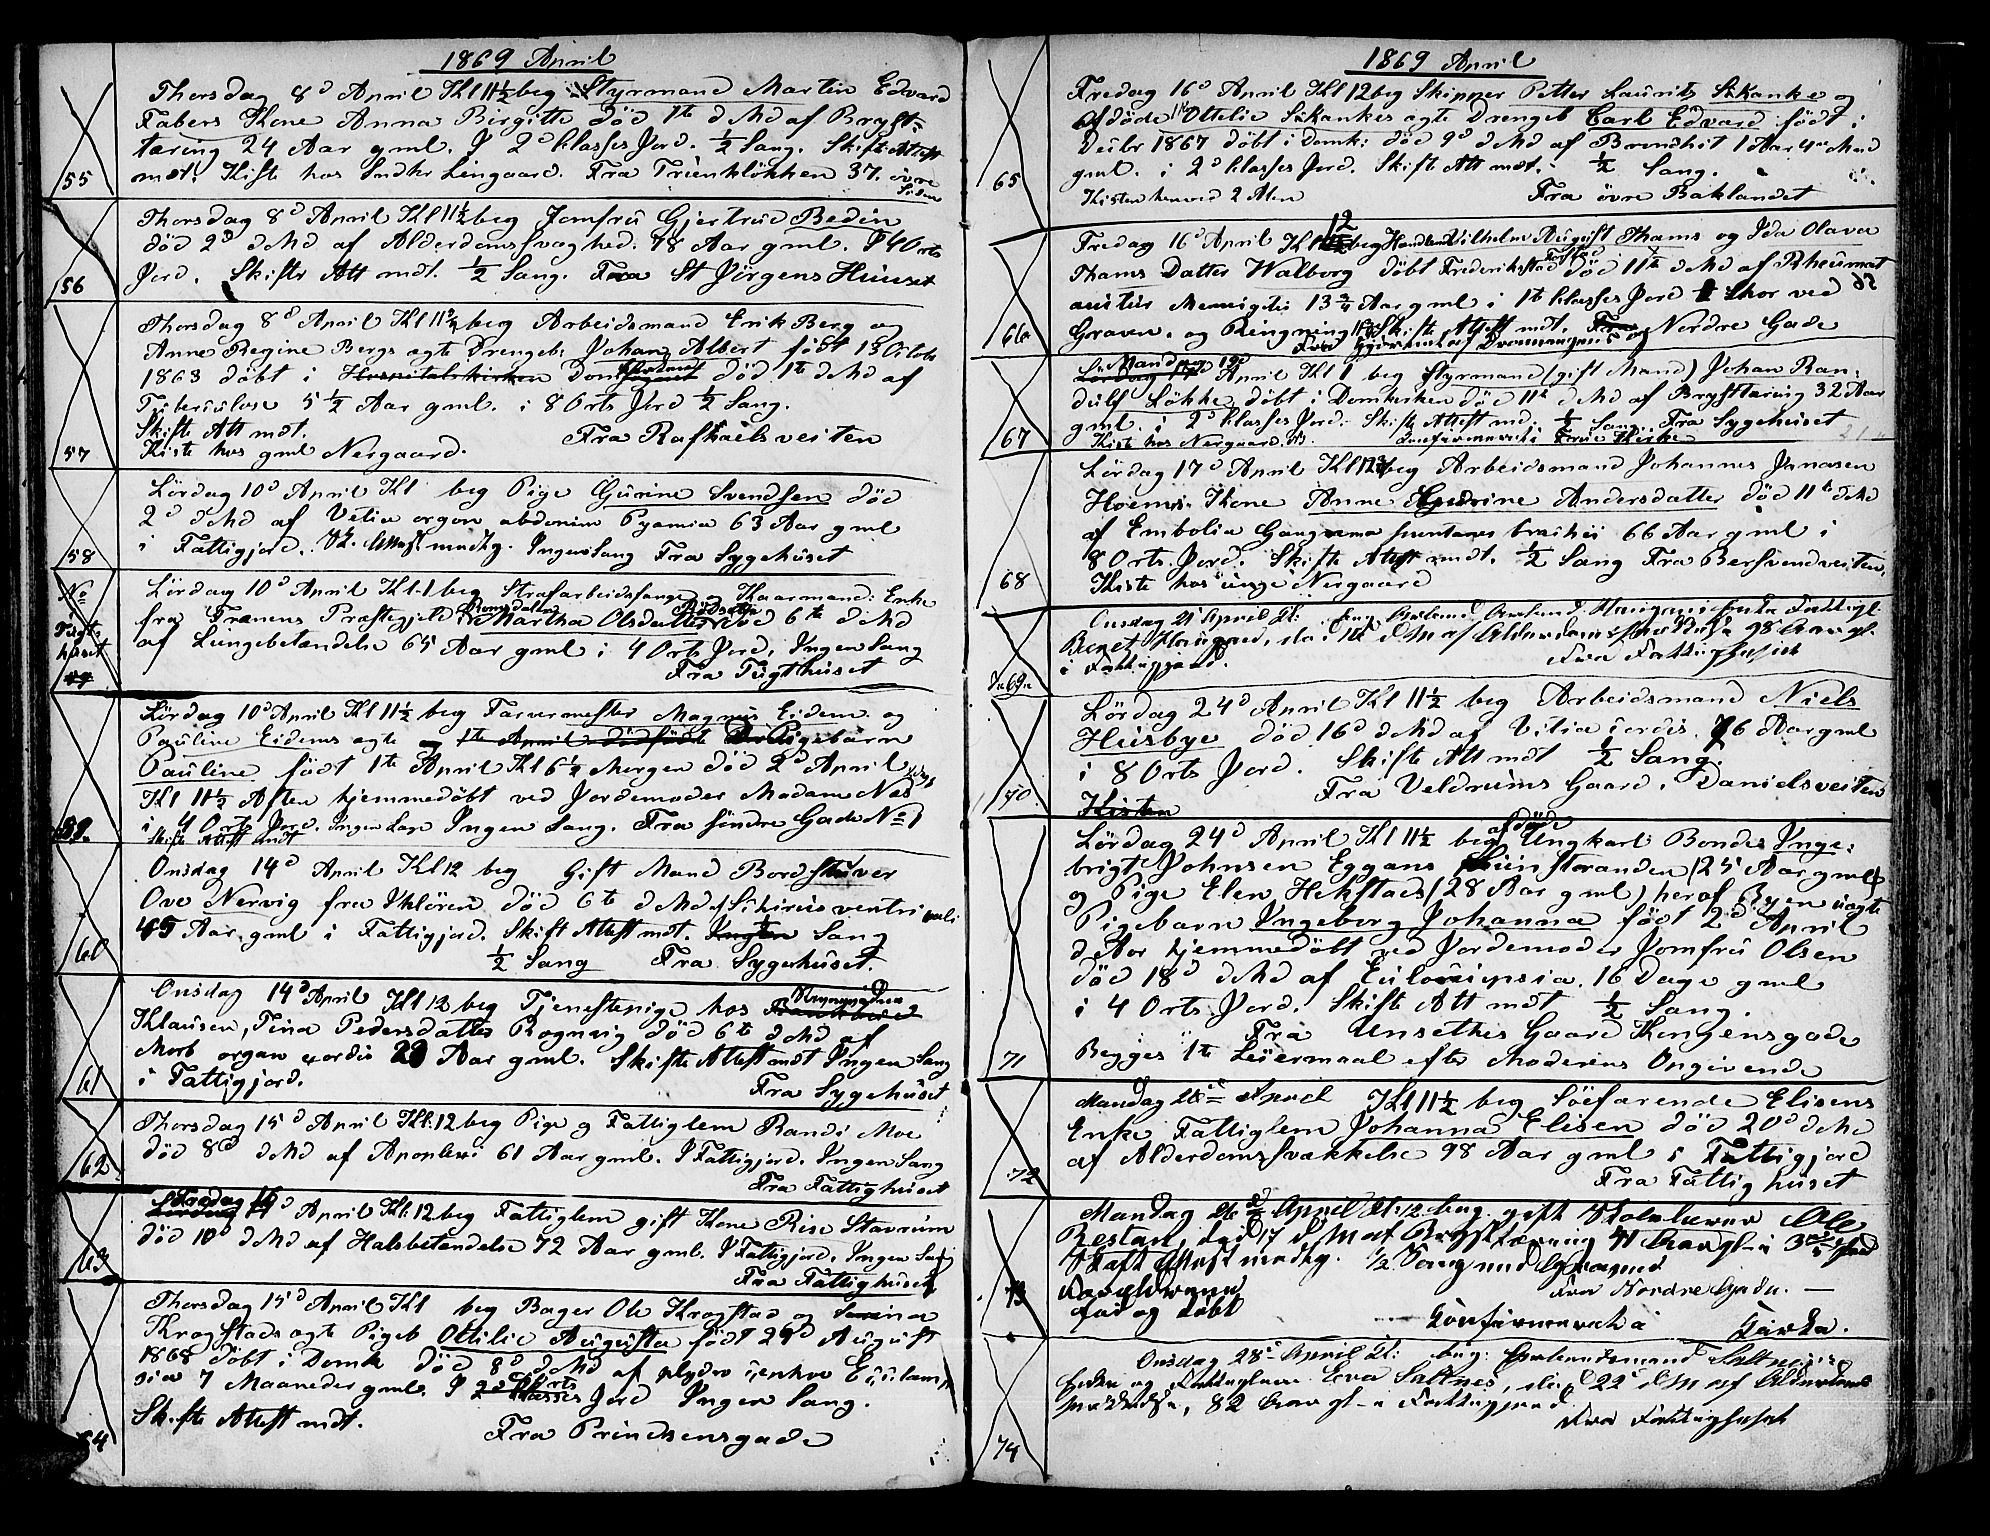 1869 April
Thorsdag 8d April Kl 11½ beg Styrmand Martin Edvard
Fabers Kone Anna Birgitte død 1te d Md af Bryst-
tæring 24 Aar gml. I 2d klasses Jord. ½ Sang. Skifte Attest
mdt. Kiste hos Lingaard. Fra 37. øvre
55
Thorsdag 8d April Kl 11½ beg Jomfru Gjertrud Bedin
død 2d d Md af Alderdomssvaghed. 78 Aar gml. I 4 Orts
Jord. Skifte Att mdt. ½ Sang. Fra St Jörgens Huuset
56
Thorsdag 8d April Kl 11¾ beg Arbeidsmand Erik Berg og
Anne Regine Bergs ægte Drengeb: Johan Albert født 13 Octob
1863 döbt i Hospitalskirken död 1te d Md af
Tuberculose 5½ Aar gml. i 8 Orts Jord ½ Sang.
Skifte Att mdt. Fra Rafhaels veiten
57 Kiste hos gml Nergaard.
Lördag 10d April Kl beg Pige Gurine Svendsen död
2d d Md af Vitia organ abdomin Pyæmia 63 Aar gml
58 i Fattigjord. Attest mndtg. Ingen Sang Fra Sygehuset
No Lördag 10d April Kl 1 beg Strafarbeidsfange og Enke
fra Præstegjeld Romsdalen Martha Olsdatter död 6te d Md
af Lungebetændelse 65 Aar gml i 4 Orts Jord, Ingen Sang
Fra Tugthuset
Tugt-
huset
Lördag 10d April Kl 11½ beg Farvermester Magnus Eidem og
Pauline Eidems ægte 1te April Pigebarn
Pauline födt 1te April Kl 6½ Morgen död 2d April
Kl 11½ Aften hjemmedöbt ved Jordemoder Madame Næs
i 4 Orts Jord. Ingen Sang. Fra Søndre Gade No 1
59. Skifte Attest mdt
Onsdag 14d April Kl 12 beg Gift Mand Bordskriver
Ove Nervig fra död 6te d Md af ventriculi
45 Aar gml i Fattigjord. Skift Attest mdt. Ingen Sang
60 ½ Sang Fra Sygehuset.
Onsdag 14d April Kl 12 beg Tjenestepige hos
Klausen, Tina Pedersdatter Rognvig död 6te d Md af
Morb organ cordis 29 Aar gml. Skifte Attest mdt Ingen Sang
61 i Fattigjord. Fra Sygehuset
Thorsdag 15d April Kl: 12 beg Pige og Fattiglem Randi Moe
död 8d d Md af Apoplexi 61 Aar gml. I Fattigjord. Ingen Sang
62 Fra Fattighuset
Fredag 16d April Kl: 12 beg Fattiglem gift Kone Stavrum
död 10d d Md af Halsbetændelse 72 Aar gml. I Fattigjord. Ingen Sang
63 Fra Fattighuset
Thorsdag 15d April Kl beg Bager Ole Krogstad og
Krogstads ægte Pigeb Ottilie Augusta födt 29d August
1868 döbt i Domk död 8d d Md af Eclamp
sia 7 Maaneder gml. I 2d Klasses Jord Ingen Sang.
Skifte Attest mdt.
64 Fra Prindsensgade
1869 April
Fredag 16d April Kl 12 beg Skipper Petter Laurits Skanke og
afdöde Ottelie Skankes ægte Drengeb Carl Edvard födt i
Decbr 1867 döbt i Domk: död 9d d Md af Brændhit 1 Aar 4 Mnd
65 gml. i 2d klasses Jord. Skifte Att mdt. ½ Sang.
Kisten henved 2 Alen Fra övre Baklandet
12
Fredag 16d April Kl beg Vilhelm August Thams og Ida Olava
Thams Datter Walborg döbt Frederikstad död 11te d Md af Rheumat
13¾ Aar gml i 1te klasses Jord Chor ved
66 Graven. og Ringning Skifte Attest mdt. Nordre Gade
Mandag 19d April Kl 1 beg Styrmand (gift Mand) Johan Ran-
dulf Løkke döbt i Domkirken död 11te d Md af Brysttæring 32 Aar
gml. i 2d klasses Jord. Skifte Attest mdt. ½ Sang. Fra Sygehuset
67 Kiste hos Nergaard. Confirmeret i Frue Kirke
Lördag 17d April Kl 12 beg Arbeidsmand Johannes Jonasen
Hoems Kone Anne Andersdatter död 11te d Md
af Embolia 66 Aar gml i
8 Orts Jord. Skifte Attest mdt. ½ Sang Fra Bersvendveiten.
68 Kiste hos unge Nergaard
Onsdag 21 April Kl: Enke Fattigl.
Beret Haugan, död d M af Alderdomssvækkelse 98 Aar gl.
i Fattigjord. Fra Fattighuset
69
Lördag 24d April Kl 11½ beg Arbeidsmand Niels
Husbye död 16d d Md af Vitia cordis. 76 Aar gml
i 8 Orts Jord. Skifte Att mdt ½ Sang.
Fra Veldrums Gaard. Danielsveiten
70. Kisten
Lördag 24d April Kl 11½ beg afdöde Ungkarl Bondes Inge-
brigt Johnsen Eggans (25 Aar gml)
og Pige Elen Hekstads (28 Aar gml) heraf Byen uægte
Pigebarn Ingeborg Johanna födt 2d April
d Aar hjemmedöbt ved Jordemoder Jomfru Olsen
död 18d d Md af 16 Dage gml
i 4 Orts Jord. Skifte Att mdt ½ Sang.
Fra Unsethes Gaard Kongensgade
71 Begges 1te Leiermaal efter Moderens Opgivende
Mandag 26de April Kl 11½ beg Söefarende Elisens
Enke Fattiglem Johanna Elisen död 20d d Md
af Alderdomssvækkelse 98 Aar gml i Fattigjord
72 Fra Fattighuset
Mandag 26de April Kl: 12 beg. gift Ole
Restan, död 17 d M af Brysttæring 41 Aar gl. i 3die Jord
Skift Attest mndtg. ½ Sang med
73 Fra Nordre Gade.
födt og döbt Confirmeret i Kirke.
Onsdag 28de April Kl: beg: Saltnes
Enke og Fattiglem Eva Saltnes, död 22d d M af Alderdoms
svækkelse, 82 Aar gl. i Fattigjord
74 Fra Fattighuset